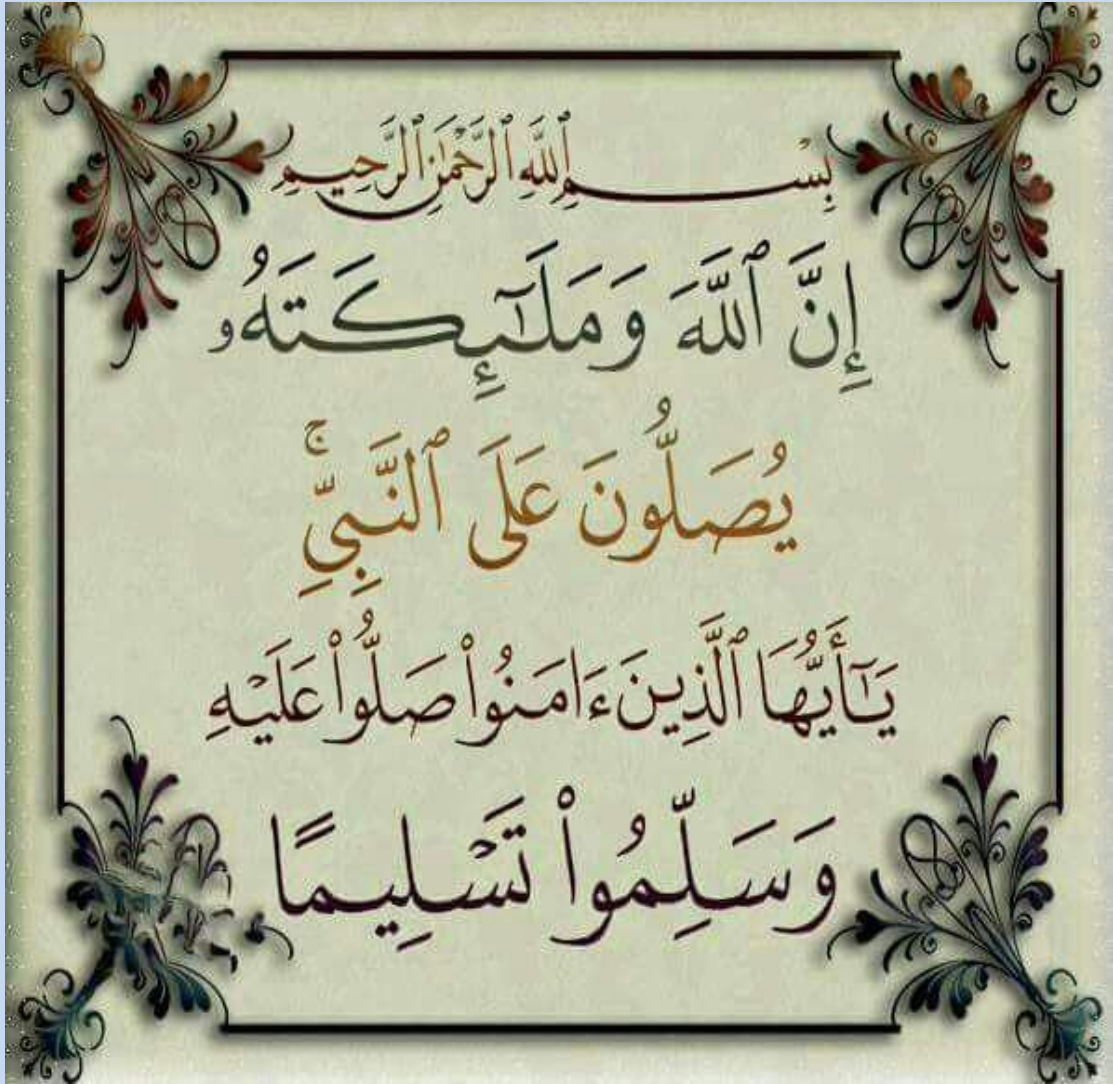 بِسْمِ ٱللَّهِ ٱلرَّحْمَٰنِ ٱلرَّحِيمِ
إِنَّ ٱللَّهَ وَمَلَٰٓئِكَتَهُۥ
يُصَلُّونَ عَلَى ٱلنَّبِىِّ ۚ
يَٰٓأَيُّهَا ٱلَّذِينَ ءَامَنُوا۟ صَلُّوا۟ عَلَيْهِ
وَسَلِّمُوا۟ تَسْلِيمًا